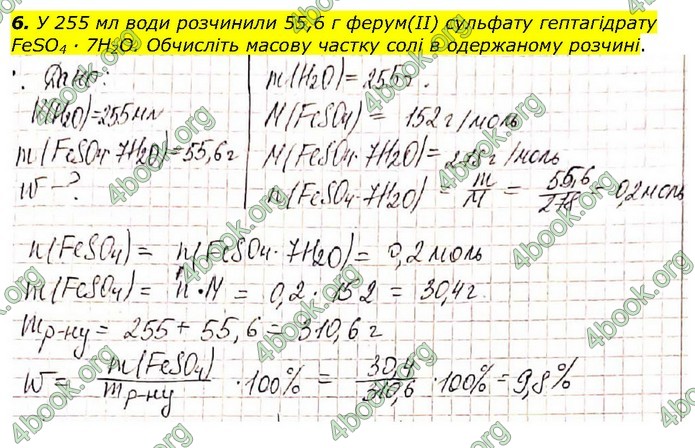 6. У 255 мл води розчинили 55,6 г ферум(II) сульфату гептагідрату
FeSO₄ · 7H₂O. Обчисліть масову частку солі в одержаному розчині.
Дано:
V(H₂O)=255мл
m(FeSO₄·7H₂O)=55,6г
W-?
m(H₂O)=255г.
M(FeSO₄) = 152г/моль
M(FeSO₄·7H₂O)= 278г/моль
n(FeSO₄·7H₂O) = m/M = 55,6/278 = 0,2моль
n(FeSO₄) = n(FeSO₄·7H₂O) = 0,2моль
m(FeSO₄) = n·M = 0,2·152 = 30,4г.
mр-ну = 255+55,6=310,6г
W = m(FeSO₄)/mр-ну ·100% = 30,4/310,6 ·100%=9,8%
4book.org